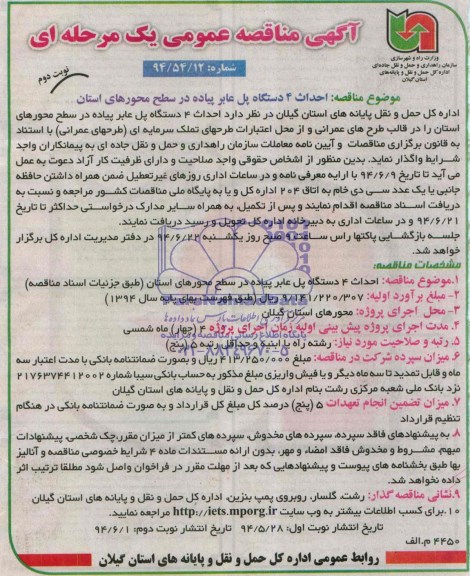 آگهی مناقصه عمومی یک مرحله ای
وزارت راه و شهرسازی
سازمان راهداری و حمل و نقل جاده‌ای
اداره کل حمل و نقل و پایانه‌های
استان گیلان
شماره: ۹۴/۵۴/۱۲
نوبت دوم
موضوع مناقصه: احداث ۴ دستگاه پل عابر پیاده در سطح محورهای استان
اداره کل حمل و نقل پایانه های استان گیلان در نظر دارد احداث ۴ دستگاه پل عابر پیاده در سطح محورهای
استان را در قالب طرح های عمرانی و از محل اعتبارات طرحهای تملک سرمایه ای (طرحهای عمرانی) با استناد
به قانون برگزاری مناقصات و آیین نامه معاملات سازمان راهداری و حمل و نقل جاده ای به پیمانکاران واجد
شرایط واگذار نماید. بدین منظور از اشخاص حقوقی واجد صلاحیت و دارای ظرفیت کار آزاد دعوت به عمل
می آید تا تاریخ ۹۴/۶/۹ با ارایه معرفی نامه و در ساعات اداری روزهای غیرتعطیل ضمن همراه داشتن حافظه
جانبی یا یک عدد سی دی خام به اتاق ۲۰۴ اداره کل و یا به پایگاه ملی مناقصات کشور مراجعه و نسبت به
دریافت اسناد مناقصه اقدام نمایند و پس از تکمیل، به همراه سایر مدارک درخواستی حداکثر تا تاریخ
۹۴/۶/۲۱ و در ساعات اداری به دبیرخانه اداره کل تحویل و رسید دریافت نمایند.
جلسه بازگشایی پاکتها راس ساعت ۹ صبح روز یکشنبه ۹۴/۶/۲۲ در دفتر مدیریت اداره کل برگزار
خواهد شد.
مشخصات مناقصه:
۱.موضوع مناقصه: احداث ۴ دستگاه پل عابر پیاده در سطح محورهای استان (طبق جزئیات اسناد مناقصه)
۲- مبلغ برآورد اولیه: ۹/۱۴۱/۲۲۰/۳۰۷ ریال (طبق فهرست بهای پایه سال ۱۳۹۴)
۳- محل اجرای پروژه: محورهای استان گیلان
۴. مدت اجرای پروژه پیش بینی اولیه زمان اجرای پروژه ۴ (چهار) ماه شمسی
۵. رتبه و صلاحیت مورد نیاز: رشته راه یا ابنیه و حداقل رتبه ۵ (پنج)
۶. میزان سپرده شرکت در مناقصه: ۴۱۳/۲۵۰/۰۰۰ ریال و بصورت ضمانتنامه بانکی با مدت اعتبار سه
ماه و قابل تمدید تا سه ماه دیگر و یا فیش واریزی مبلغ مذکور به حساب بانکی سیبا شماره ۲۱۷۶۳۷۴۴۱۲۰۰۲
نزد بانک ملی شعبه مرکزی رشت بنام اداره کل حمل و نقل و پایانه های استان گیلان
۷. میزان تضمین انجام تعهدات ۵ (پنج) درصد کل مبلغ کل قرارداد و به صورت ضمانتنامه بانکی در هنگام
تنظیم قرارداد
۸- به پیشنهادهای فاقد سپرده، سپرده های مخدوش، سپرده های کمتر از میزان مقرر،چک شخصی پیشنهادات
مبهم، مشروط و مخدوش فاقد امضاء و مهر، بدون ارانه مستندات ماده ۴ شرایط خصوصی مناقصه و آنالیز
بها طبق بخشنامه های پیوست و پیشنهادهایی که بعد از مهلت مقرر در فراخوان واصل شود مطلقا ترتیب اثر
داده نخواهد شد.
۹.نشانی مناقصه گذار: رشت، گلسار، روبروی پمپ بنزین، اداره کل حمل و نقل و پایانه های استان گیلان
۱۰.برای کسب اطلاعات بیشتر به وب سایت http://iets.mporg.ir مراجعه نمایید.
تاریخ انتشار نوبت اول: ۹۴/۵/۲۸ تاریخ انتشار نوبت دوم: ۹۴/۶/۱
۴۴۵۰ م.الف
روابط عمومی اداره کل حمل و نقل و پایانه های استان گیلان